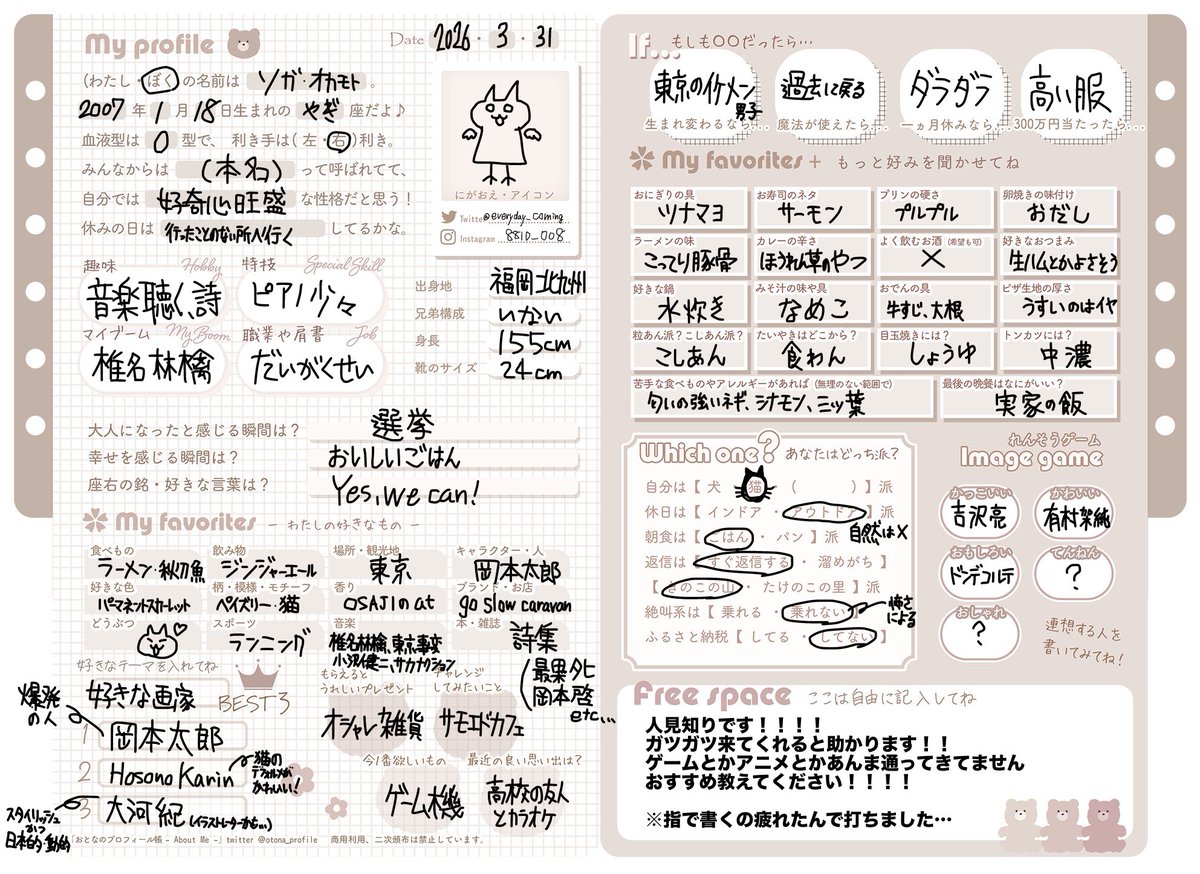 My profile
Date 2026・3・31
(わたし・ぼく)の名前は ソガ・オカモト。
2007年1月18日生まれの やぎ 座だよ♪
血液型は O 型で、利き手は(左・右)利き。
みんなからは (本名) って呼ばれてて、
自分では 好奇心旺盛 な性格だと思う!
休みの日は 行ったことのない所へ行く してるかな。
にがおえ・アイコン
Twitter @everyday_caming
Instagram 881D_008
趣味 Hobby
音楽聴く、詩
特技 Special Skill
ピアノ少々
マイブーム My Boom
椎名林檎
職業や肩書 Job
だいがくせい
出身地 福岡北九州
兄弟構成 いない
身長 155cm
靴のサイズ 24cm
大人になったと感じる瞬間は? 選挙
幸せを感じる瞬間は? おいしいごはん
座右の銘・好きな言葉は? Yes, we can!
My favorites - わたしの好きなもの -
食べもの ラーメン・秋刀魚
飲み物 ジンジャーエール
場所・観光地 東京
キャラクター・人 岡本太郎
好きな色 パーマネントスカーレット
柄・模様・モチーフ ペイズリー・猫
香り OSAJIのat
ブランド・お店 go slow caravan
どうぶつ
スポーツ ランニング
音楽 椎名林檎、東京事変
小沢健二、サカナクション
本・雑誌 詩集
(最果タヒ
岡本啓
etc...
好きなテーマを入れてね
好きな画家
BEST3
爆発の人
1 岡本太郎
2 Hosono Karin
猫のデフォルメがかわいい!
3 大河紀 (イラストレーターかも…)
スタイリッシュかつ日本的・動的
もらえるとうれしいプレゼント
オシャレ雑貨
チャレンジしてみたいこと
サモエドカフェ
今1番欲しいもの
ゲーム機
最近の良い思い出は?
高校の友人とカラオケ
「おとなのプロフィール帳 - About Me -」twitter @otona_profile 商用利用、二次頒布は禁止しています。
If... もしも〇〇だったら…
東京のイケメン男子
生まれ変わるなら…
過去に戻る
魔法が使えたら…
ダラダラ
一ヵ月休みなら…
高い服
300万円当たったら…
My favorites+ もっと好みを聞かせてね
おにぎりの具 ツナマヨ
お寿司のネタ サーモン
プリンの硬さ プルプル
卵焼きの味付け おだし
ラーメンの味 こってり豚骨
カレーの辛さ ほうれん草のやつ
よく飲むお酒 (希望も可) ×
好きなおつまみ 生ハムとかよさそう
好きな鍋 水炊き
みそ汁の味や具 なめこ
おでんの具 牛すじ、大根
ピザ生地の厚さ うすいのはイヤ
粒あん派?こしあん派? こしあん
たいやきはどこから? 食わん
目玉焼きには? しょうゆ
トンカツには? 中濃
苦手な食べものやアレルギーがあれば (無理のない範囲で)
匂いの強いネギ、シナモン、三ッ葉
最後の晩餐はなにがいい?
実家の飯
Which one? あなたはどっち派?
自分は【 犬 猫 ( )】派
休日は【 インドア ・ アウトドア 】派
自然は×
朝食は【 ごはん ・ パン 】派
返信は【 すぐ返信する ・ 溜めがち 】
【 きのこの山 ・ たけのこの里 】派
絶叫系は【 乗れる ・ 乗れない 】
怖さによる
ふるさと納税【 してる ・ してない 】
れんそうゲーム
Image game
かっこいい 吉沢亮
かわいい 有村架純
おもしろい ドンデコルテ
てんねん ?
おしゃれ ?
連想する人を書いてみてね!
Free space ここは自由に記入してね
人見知りです!!!!
ガツガツ来てくれると助かります!!
ゲームとかアニメとかあんま通ってきてません
おすすめ教えてください!!!!
※指で書くの疲れたんで打ちました…